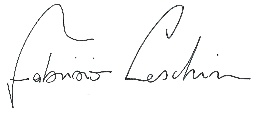 Fabrizio Ceschin